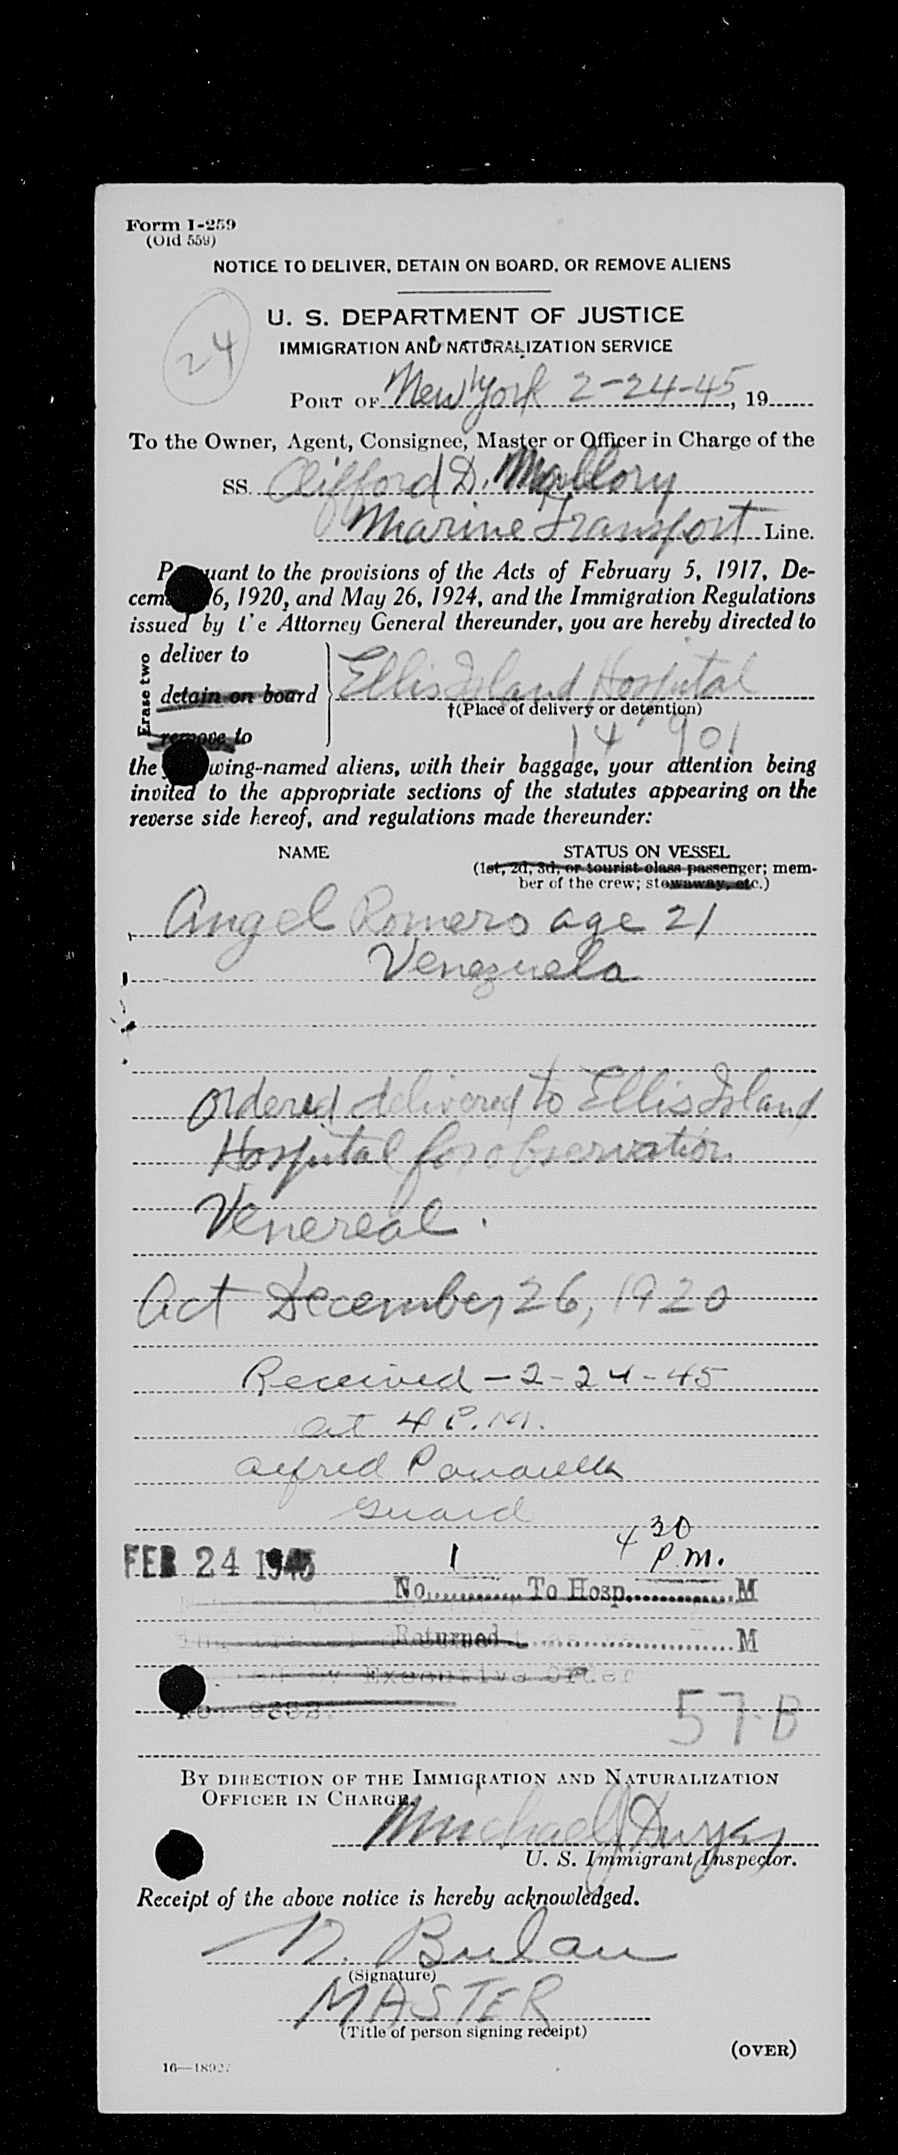 Form I-259
(Old 559)
NOTICE TO DELIVER, DETAIN ON BOARD, OR REMOVE ALIENS
24
U. S. DEPARTMENT OF JUSTICE
IMMIGRATION AND NATURALIZATION SERVICE
PORT OF New York 2-24-45, 19
To the Owner, Agent, Consignee, Master or Officer in Charge of the
SS. Clifford D. Mallory
Marine Transport Line.
Pursuant to the provisions of the Acts of February 5, 1917, De-
cember 26, 1920, and May 26, 1924, and the Immigration Regulations
issued by the Attorney General thereunder, you are hereby directed to
Erase two
deliver to
detain on board
remove to
Ellis Island Hospital
†(Place of delivery or detention)
14 901
the following-named aliens, with their baggage, your attention being
invited to the appropriate sections of the statutes appearing on the
reverse side hereof, and regulations made thereunder:
NAME STATUS ON VESSEL
(1st, 2d, 3d, or tourist class passenger; mem-
ber of the crew; stowaway, etc.)
Angel Romero age 21
Venezuela
Ordered delivered to Ellis Island
Hospital for observation
Venereal.
Act December 26, 1920
Received - 2-24-45
at 4 P.M.
Alfred
Guard
FEB 24 1945
No. 1 To Hosp. 4 30 P.M. M
Returned M
by Executive Order
No.
57-B
BY DIRECTION OF THE IMMIGRATION AND NATURALIZATION
OFFICER IN CHARGE.
Michael J.
U. S. Immigrant Inspector.
Receipt of the above notice is hereby acknowledged.
N. Bulau
(Signature)
MASTER
(Title of person signing receipt)
(OVER)